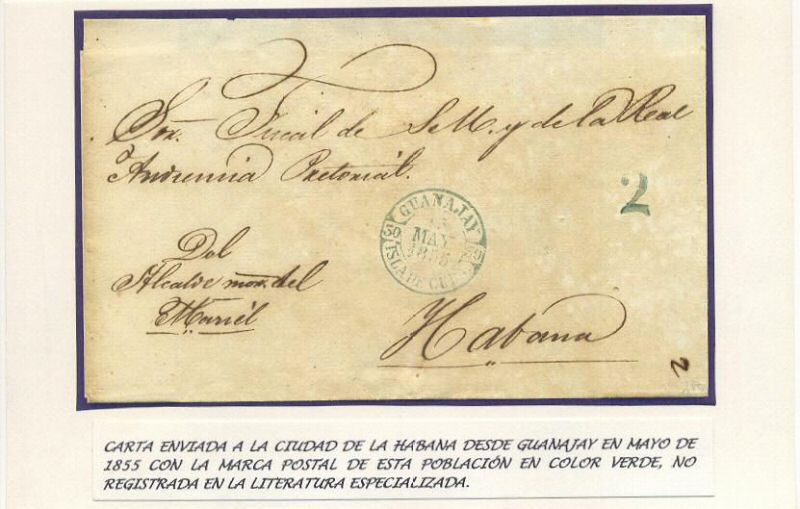 Sor. Fiscal de S. M. y de la Real
Audiencia Pretorial.
2
GUANAJAY
MAY.
ISLA DE CUBA
Del
Alcalde mor. del
Mariél
Habana
2
CARTA ENVIADA A LA CIUDAD DE LA HABANA DESDE GUANAJAY EN MAYO DE
1855 CON LA MARCA POSTAL DE ESTA POBLACIÓN EN COLOR VERDE, NO
REGISTRADA EN LA LITERATURA ESPECIALIZADA.